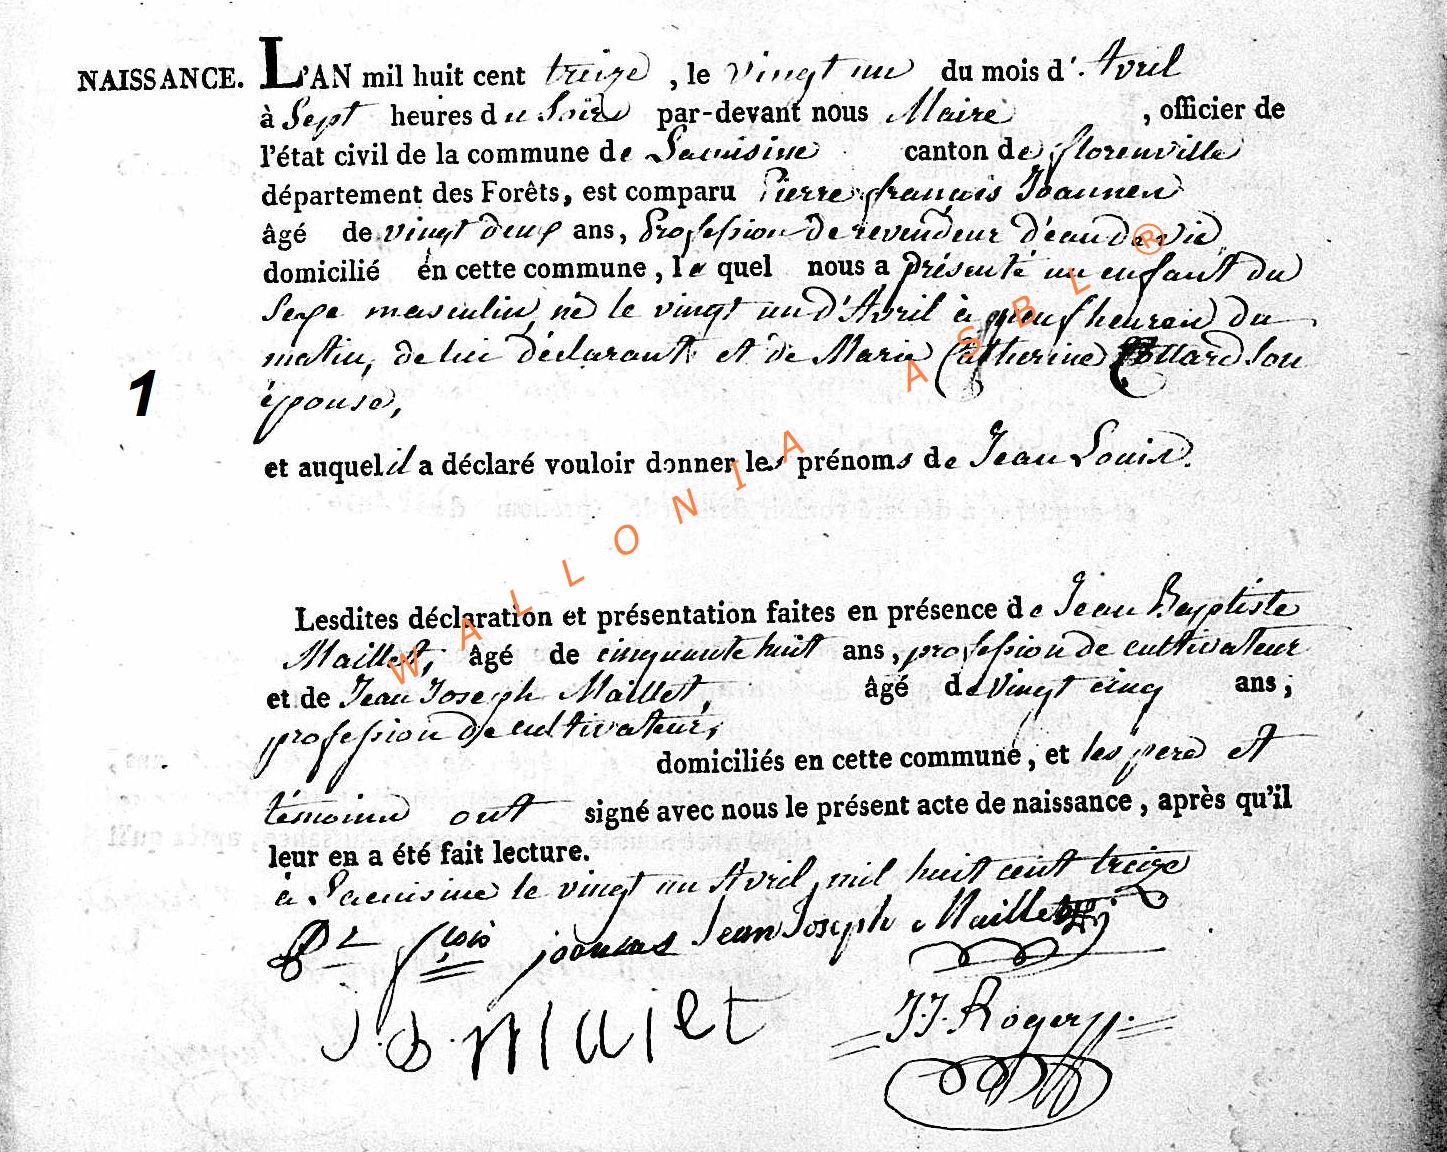 NAISSANCE. L'AN mil huit cent treize, le vingt un du mois d'Avril
à Sept heures du Soir par-devant nous Maire, officier de
l'état civil de la commune de Lacuisine canton de florenville
département des Forêts, est comparu Pierre françois Joannen
âgé de vingt deux ans, Profession de revendeur d'eau de vie
domicilié en cette commune, le quel nous a présenté un enfant du
Sexe masculin, né le vingt un d'Avril à neuf heures du
matin, de lui déclarant et de Marie Catherine Collard Son
1
épouse,
et auquel il a déclaré vouloir donner les prénoms de Jean Louis.
Lesdites déclaration et présentation faites en présence de Jean Baptiste
Maillet, âgé de cinquante huit ans, profession de cultivateur
et de Jean Joseph Maillet, âgé de vingt cinq ans;
profession de cultivateur,
domiciliés en cette commune, et les pere et
témoins ont signé avec nous le présent acte de naissance, après qu'il
leur en a été fait lecture.
à Lacuisine le vingt un Avril mil huit cent treize
Jean Joseph Maillet
J. B. Maiet
J. J. Roger
WALLONIA ASBL ®